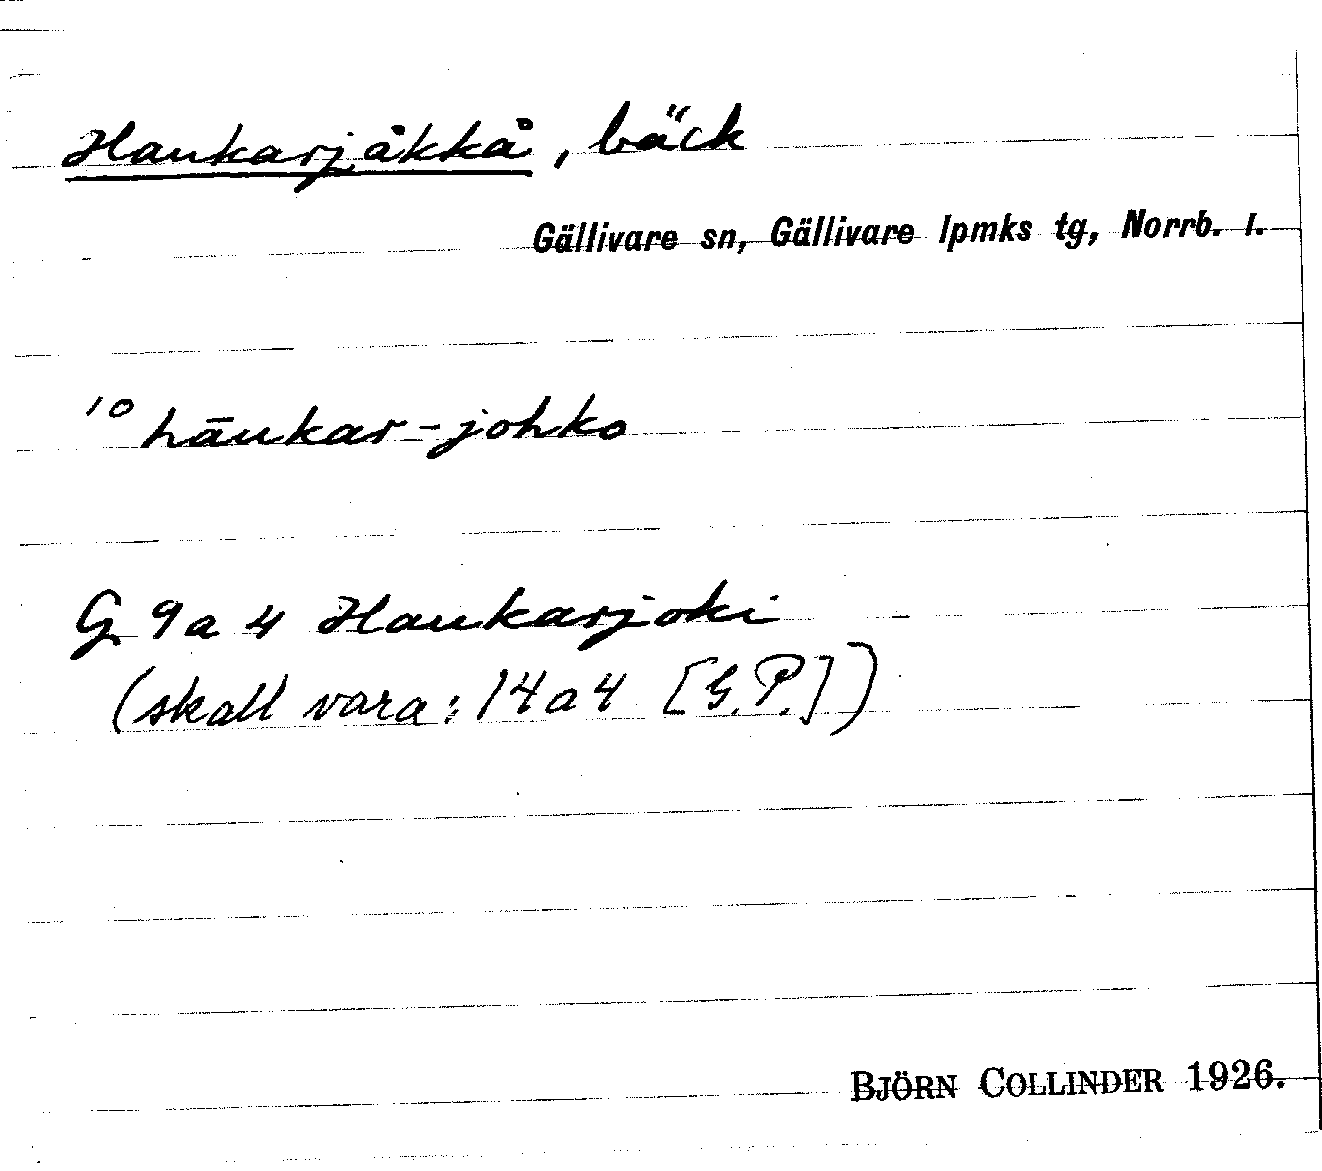 Haukarjåkkå, bäck
Gällivare sn, Gällivare lpmks tg, Norrb. l.
10 hāukar-johko
G 9a 4 Haukarjoki
(skall vara: 14a4 [G.P.])
BJÖRN COLLINDER 1926.